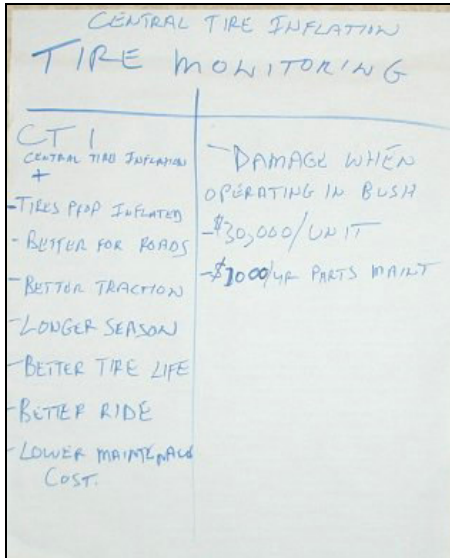 CENTRAL TIRE INFLATION
TIRE MONITORING
CTI
CENTRAL TIRE INFLATION
+
- TIRES PROP INFLATED
- BETTER FOR ROADS
- BETTER TRACTION
- LONGER SEASON
- BETTER TIRE LIFE
- BETTER RIDE
- LOWER MAINTENANCE
COST.
- DAMAGE WHEN
OPERATING IN BUSH
- $30,000/UNIT
- $1000/YR PARTS MAINT